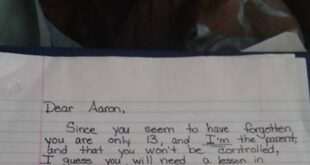 Dear Aaron,
Since you seem to have forgotten
you are only 13, and I'm the parent,
and that you won't be controlled,
I guess you will need a lesson in